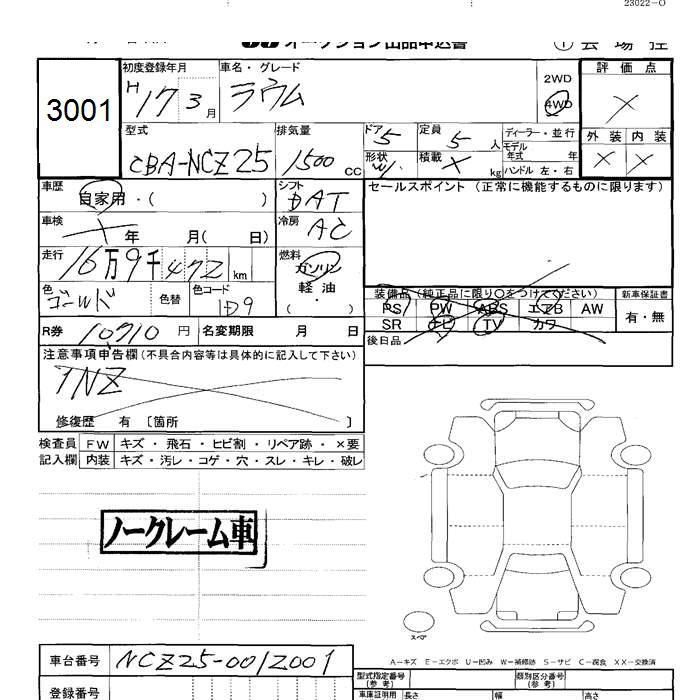 23022-O
オークション出品申込書 ① 会場控
3001
初度登録年月 車名・グレード 2WD 評価点
H17 3月 ラウム 4WD ×
型式 排気量 ドア 5 定員 5人 ディーラー・並行 外装 内装
CBA-NCZ25 1500cc 形状 W 積載 × kg モデル年式 年 × ×
ハンドル 左・右
車歴 自家用・( ) シフト DAT セールスポイント(正常に機能するものに限ります)
車検 × 年 月( 日) 冷房 AC
走行 16万9千472km 燃料 ガソリン
軽油
( )
色 ゴールド 色替 色コード 1D9
装備品(純正品に限り○をつけてください) 新車保証書
PS PW ABS エアB AW 有・無
SR ナビ TV カワ
R券 10710円 名変期限 月 日 後日品
注意事項申告欄(不具合内容等は具体的に記入して下さい)
1NZ
修復歴 有 〔箇所 〕
検査員 FW キズ・飛石・ヒビ割・リペア跡・×要
記入欄 内装 キズ・汚レ・コゲ・穴・スレ・キレ・破レ
ノークレーム車
スペア
A-キズ E-エクボ U-凹み W-補修跡 S-サビ C-腐食 XX-交換済
車台番号 NCZ25-0012001
型式指定番号(参考) 類別区分番号(参考)
登録番号 車庫証明用 長さ 幅 高さ